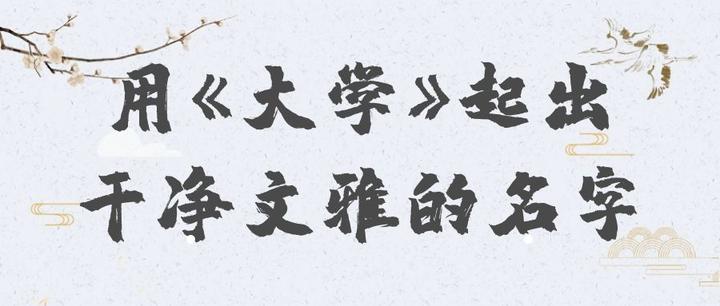 用《大学》起出
干净文雅的名字